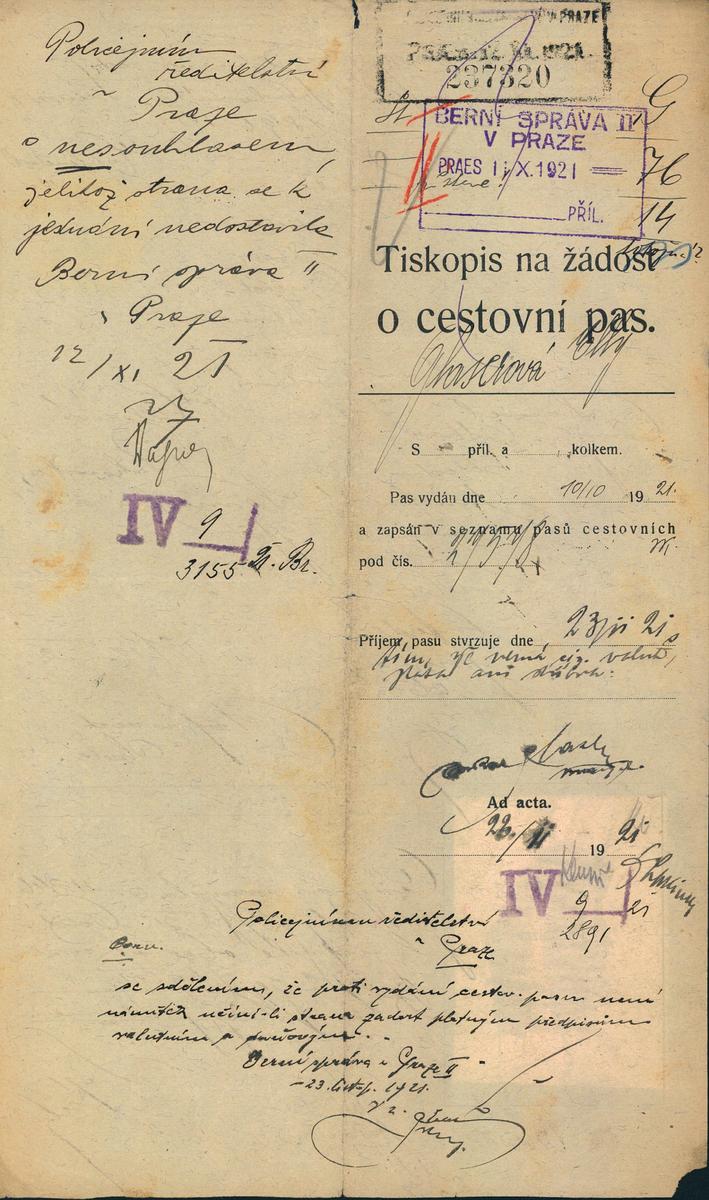 Policejním
ředitelství
v Praze
s nesouhlasem,
jelikož strana se k
jednání nedostavila
Berní správa II
v Praze
12/XI 21
IV 9
3155
V PRAZE
1921
237320
G
BERNÍ SPRÁVA II
V PRAZE
PRAES 1 X.1921
PŘÍL.
76
14
Tiskopis na žádost
o cestovní pas.
Glaserová Elly
S příl. a kolkem.
Pas vydán dne 10/10 1921.
a zapsán v seznamu pasů cestovních
pod čís.
Příjem pasu stvrzuje dne 23/11 21 s
tím, že nemá
zlata ani stříbra.
Ad acta.
19 21
IV 9
21
2891
Policejnímu ředitelství
v Praze
se sdělením, že proti vydání cestov. pasu není
námitek učiní-li strana zadost platným předpisům
valutním a daňovým.
Berní správa v Praze II
23. listop. 1921.